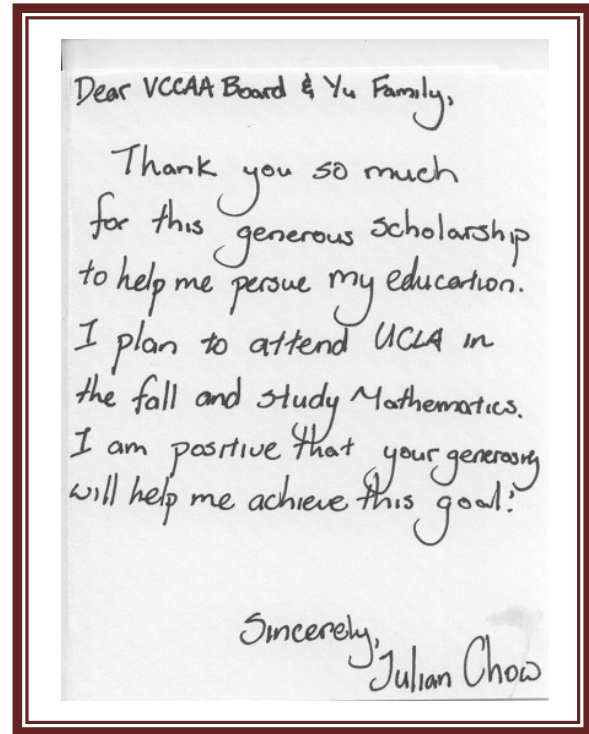 Dear VCCAA Board & Yu Family,
Thank you so much
for this generous scholarship
to help me persue my education.
I plan to attend UCLA in
the fall and study Mathematics.
I am positive that your generosity
will help me achieve this goal!
Sincerely,
Julian Chow